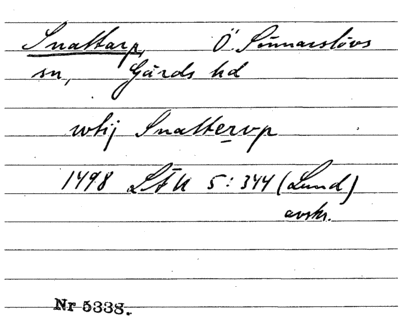 Snattarp, Ö. Sönnarslövs
sn, Gärds hd
utij Snattervp
1498 LÄU 5:344 (Lund)
avskr.
Nr 5338.